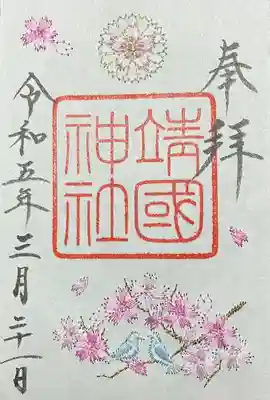 奉拝
靖國
神社
令和五年三月二十一日